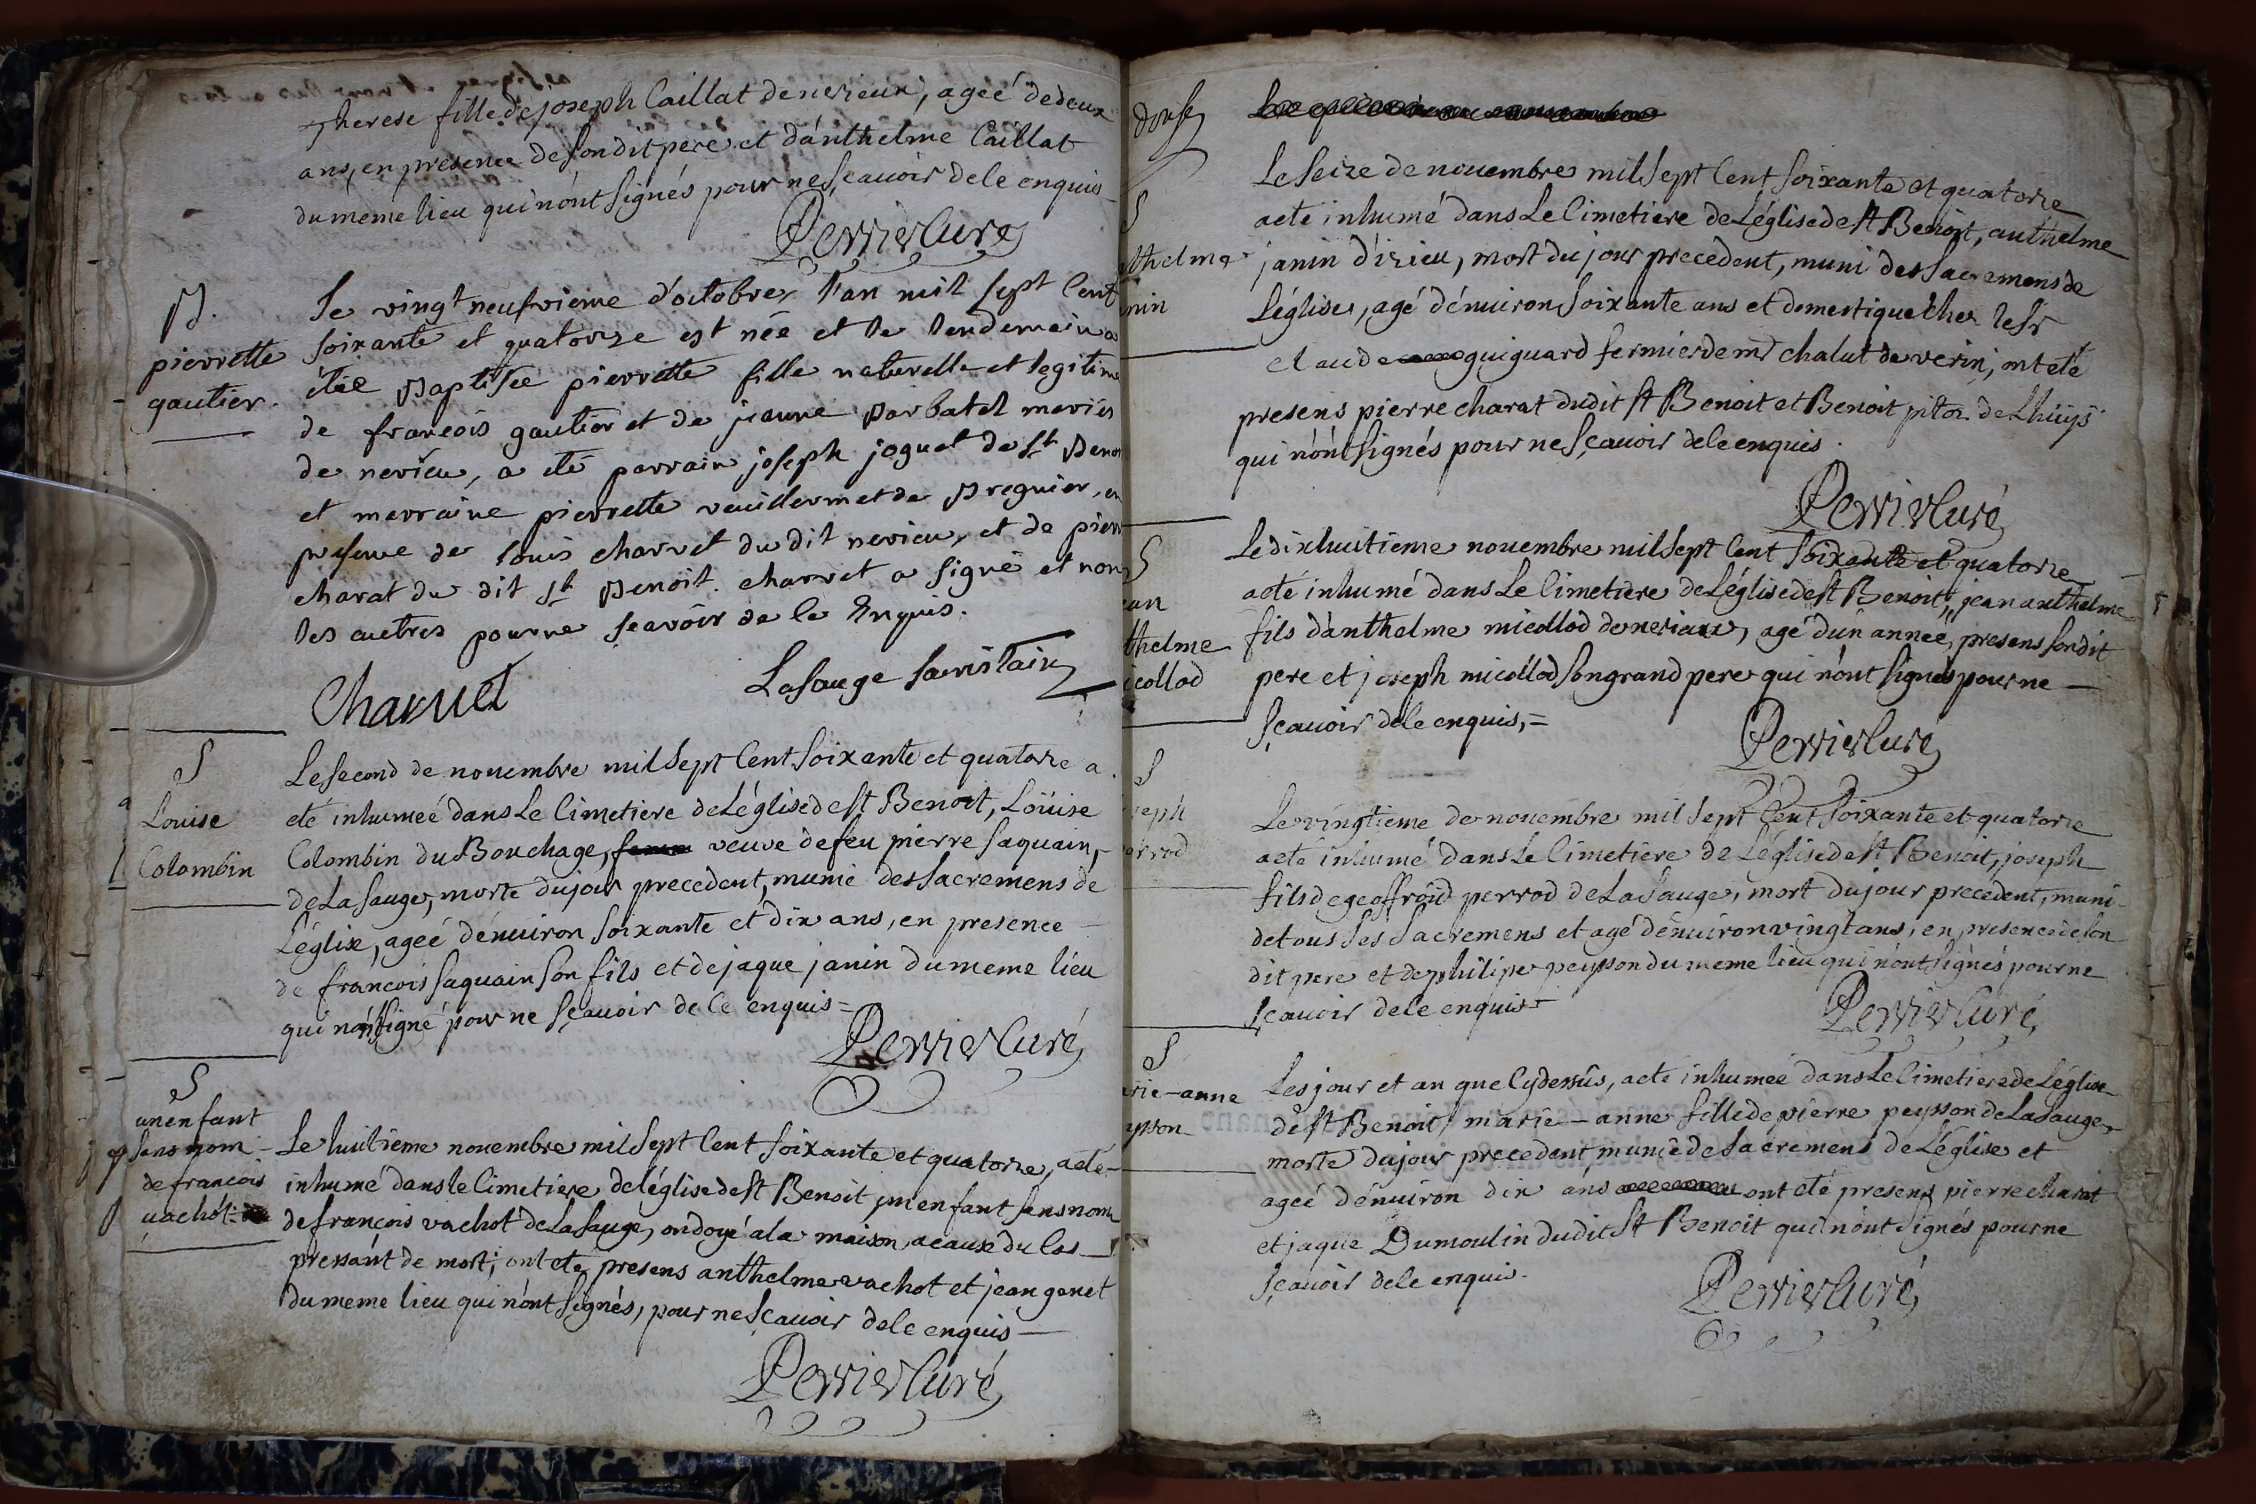 therese fille de joseph Caillat de nerieux, ageé de deux
ans, en presence de son dit pere et d'anthelme Caillat
du meme lieu qui n'ont signés pour ne sçavoir de le enquis
Perrier Curé
B.
pierrette
gautier.
le vingt neufvieme d'octobre l'an mil sept Cent
soixante et quatorze est née et le lendemain a
étée Baptisée pierrette fille naturelle et legitime
de francois gautier et de jeanne Barbatel mariés
de nerieu, a eté parrain joseph joguet de St Benoi
et marraine pierrette vuillermet de Bregnier, en
presence de louis charvet du dit nerieu, et de pierr
charat du dit St Benoit. charvet a signé et non
les autres pour ne sçavoir de le Enquis.
Charuet
Lasauge sacristain
S
Louise
Colombin
Le second de novembre mil sept Cent soixante et quatorze a
eté inhumeé dans Le Cimetiere de L'église de st Benoit, Loüise
Colombin du Bouchage, femme veuve de feu pierre saquain,
de La sauge, morte du jour precedent, munie des sacremens de
L'église, ageé d'énviron soixante et dix ans, en presence
de francois saquain son fils et de jaque janin du meme lieu
qui n'ont signé pour ne sçavoir de le enquis =
Perrier Curé
S
un enfant
sans nom
de francois
vachot
Le huitieme novembre mil sept Cent soixante et quatorze, a eté
inhumé dans le Cimetiere de l'église de st Benoit un enfant sans nom
de françois vachot de La sauge, ondoyé a la maison a cause du Cas
pressant de mort; ont eté presens anthelme vachot et jean genet
du meme lieu qui n'ont signés, pour ne sçavoir de le enquis
Perrier Curé
Le seize de novembre mil sept Cent soixante et quatorze
S
a eté inhumé dans Le Cimetiere de L'église de st Benoit, anthelme
thelme
nin
janin d'izieu, mort du jour precedent, muni des sacremens de
L'église, agé d'énviron soixante ans et domestique chez le Sr
claude guiguard fermier de mr chalut de verin; ont eté
presens pierre charat dudit st Benoit et Benoit piton de Lhuys
qui n'ont signés pour ne sçavoir de le enquis.
Perrier Curé
S
ean
thelme
icollod
Le dix huitieme novembre mil sept Cent soixante et quatorze
a eté inhumé dans Le Cimetiere de L'église de st Benoit, jean anthelme
fils d'anthelme micollod de nerieux, agé d'un anneé, presens son dit
pere et joseph micollod son grand pere qui n'ont signés pour ne
sçavoir de le enquis, =
Perrier Curé
S
seph
errod
Le vingtieme de novembre mil sept Cent soixante et quatorze
a eté inhumé dans Le Cimetiere de L'église de st Benoit, joseph
fils de geoffroid perrod de La sauge, mort du jour precedent, muni
de tous ses sacremens et agé d'énviron vingt ans, en presence de son
dit pere et de philipe peysson du meme lieu qui n'ont signés pour ne
sçavoir de le enquis
Perrier Curé
S
rie-anne
ysson
Les jour et an que Cy dessûs, a eté inhumeé dans Le Cimetiere de L'église
de st Benoit, marie-anne fille de pierre peysson de La sauge,
morte du jour precedent, munie de sacremens de L'église et
ageé d'énviron dix ans ont eté presens pierre charat
et jaque Dumoulin dudit st Benoit qui n'ont signés pour ne
sçavoir de le enquis.
Perrier Curé